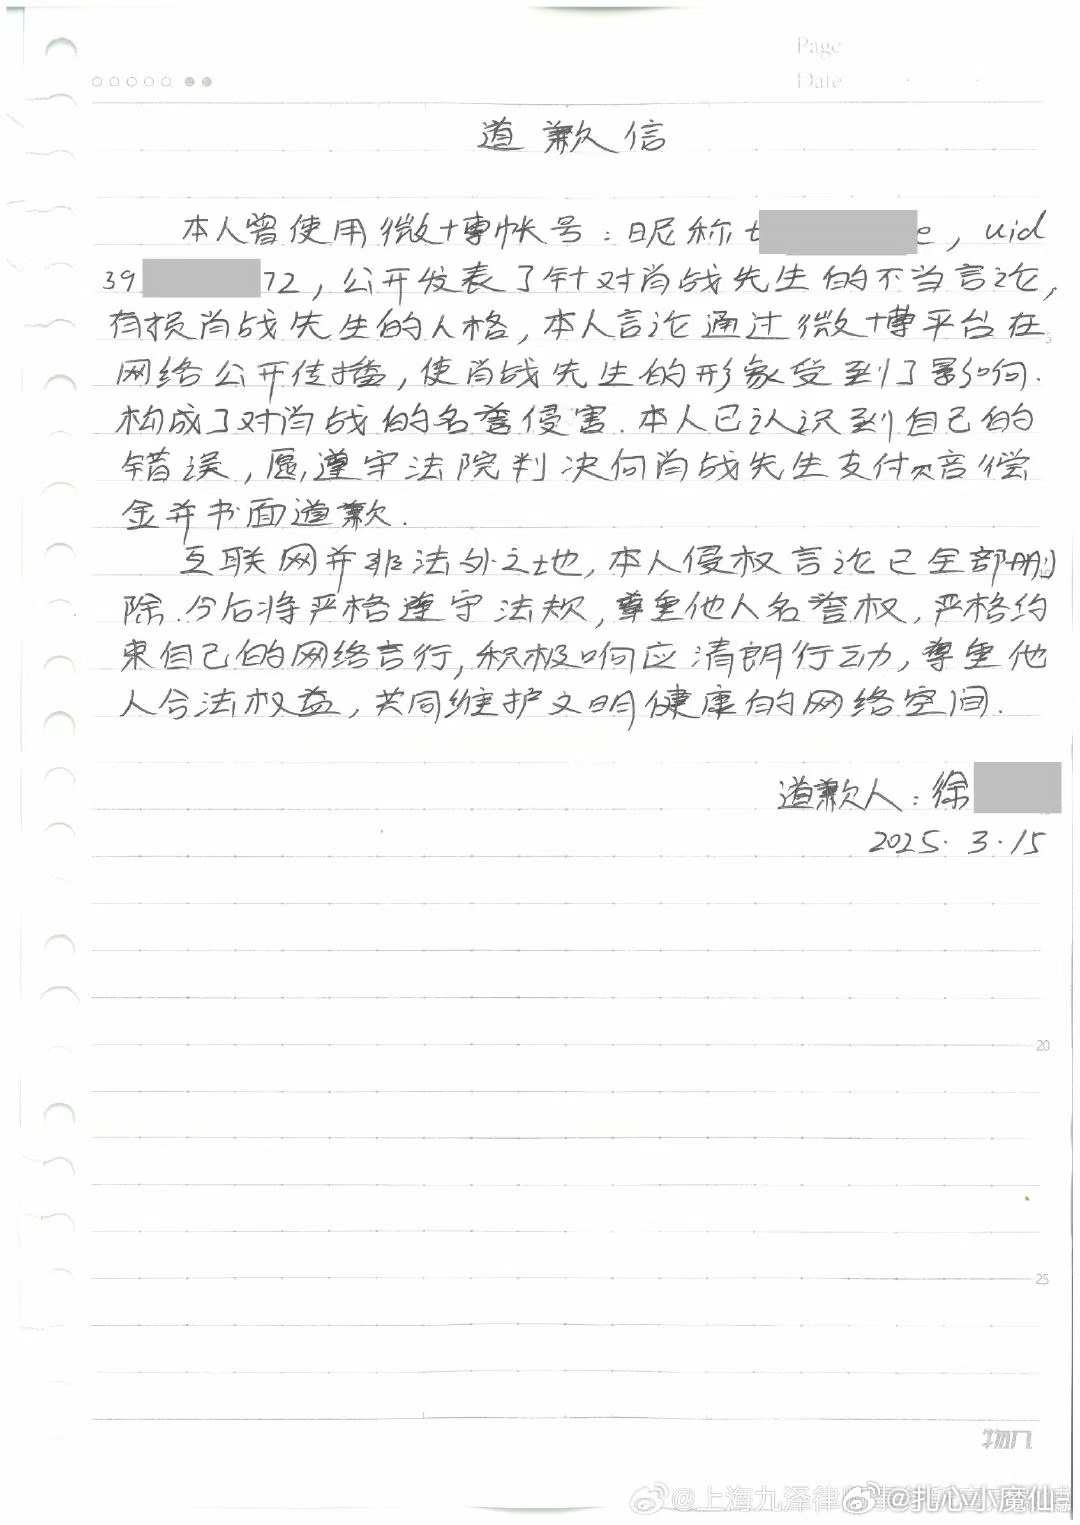 Page
Date
道歉信
本人曾使用微博帐号：昵称t e，uid
39 72，公开发表了针对肖战先生的不当言论，
有损肖战先生的人格，本人言论通过微博平台在
网络公开传播，使肖战先生的形象受到了影响.
构成了对肖战的名誉侵害.本人已认识到自己的
错误，愿遵守法院判决向肖战先生支付赔偿
金并书面道歉.
互联网并非法外之地，本人侵权言论已全部删
除.今后将严格遵守法规，尊重他人名誉权，严格约
束自己的网络言行，积极响应清朗行动，尊重他
人合法权益，共同维护文明健康的网络空间.
道歉人：徐
2025.3.15
20
25
物几
@上海九泽律 事
@扎心小魔仙